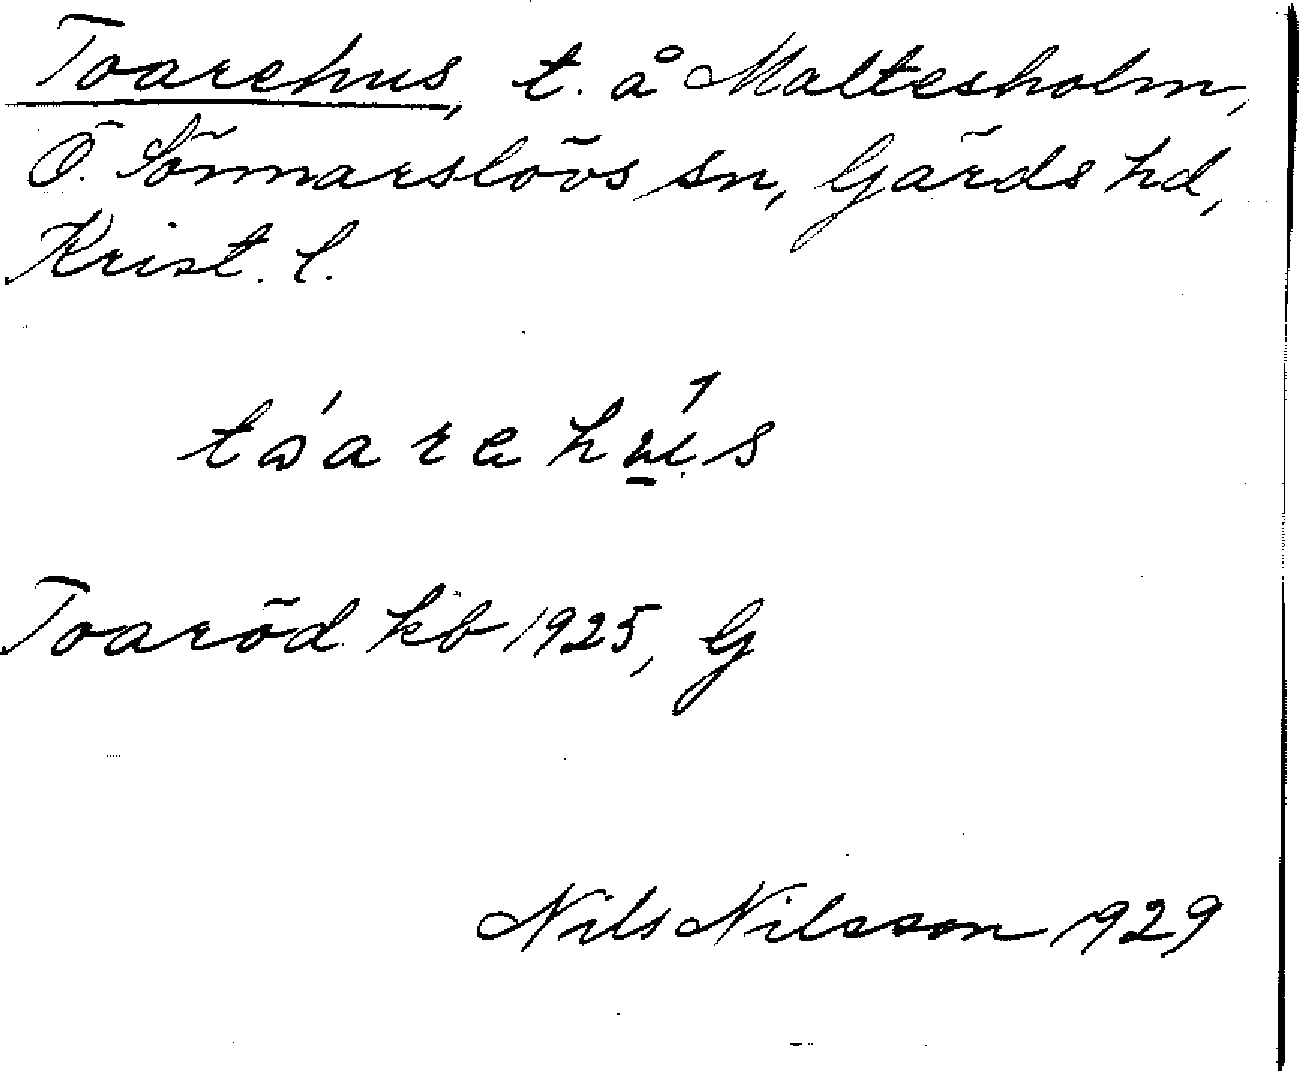 Toarehus, t. å Maltesholm,
Ö. Sönnarslövs sn, Gärds hd,
Krist. l.
Toaröd kb 1925, G
Nils Nilsson 1929